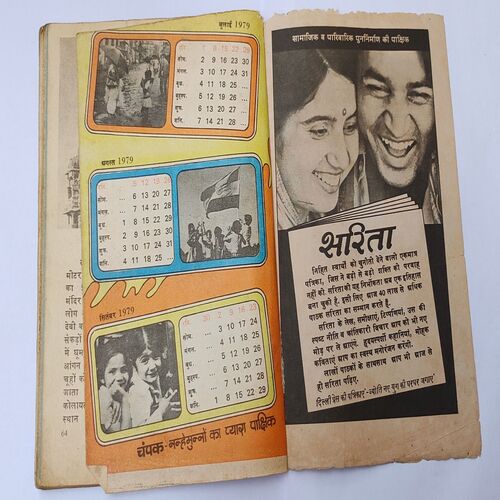 जुलाई 1979
रवि. ... 1 8 15 22 29
सोम. 2 9 16 23 30
मंगल. 3 10 17 24 31
बुध. 4 11 18 25 ...
बृहस्प. 5 12 19 26 ...
शुक्र. 6 13 20 27 ...
शनि. 7 14 21 28 ...
अगस्त 1979
रवि. ... 5 12 19 26
सोम. ... 6 13 20 27
मंगल. ... 7 14 21 28
बुध. 1 8 15 22 29
बृहस्प. 2 9 16 23 30
शुक्र. 3 10 17 24 31
शनि. 4 11 18 25 ...
सितंबर 1979
रवि. 30 2 9 16 23
सोम. ... 3 10 17 24
मंगल. ... 4 11 18 25
बुध. ... 5 12 19 26
बृहस्प. ... 6 13 20 27
शुक्र. ... 7 14 21 28
शनि. 1 8 15 22 29
चंपक-नन्हेमुन्नों का प्यारा पाक्षिक
मोटर
का
मंदिर
लोग
देवी
सैकड़ों
में घूम
आंगन
चूहों
जाता
कोलाय
स्थान
64
सामाजिक व पारिवारिक पुनर्निर्माण की पाक्षिक
सरिता
निहित स्वार्थों को चुनौती देने वाली एकमात्र
पत्रिका, जिस ने बड़ी से बड़ी शक्ति की परवाह
नहीं की. सरिता की यह निर्भीकता अब एक इतिहास
बन चुकी है. इसी लिए आज 40 लाख से अधिक
पाठक सरिता का सम्मान करते हैं.
सरिता के लेख, समीक्षाएं, टिप्पणियां, उस की
स्पष्ट नीति व क्रांतिकारी विचार आप को भी नए
मोड़ पर ले आएंगे. हृदयस्पर्शी कहानियां, मोहक
कविताएं आप का स्वस्थ मनोरंजन करेंगी.
लाखों पाठकों के साथसाथ आप भी आज से
ही सरिता पढ़िए.
'दिल्ली प्रेस की पत्रिकाएं'-ज्योति नए युग की घरघर जगाएं'